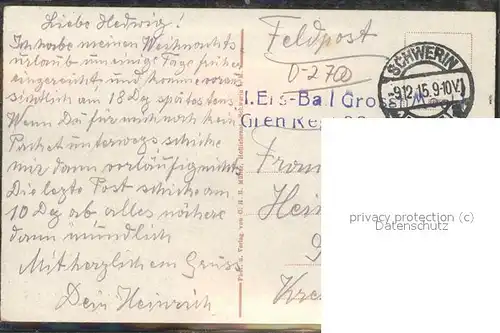 Liebe Hedwig!
Ich habe meinen Weihnachts
urlaub um einige Tage früher
eingereicht und komme voraus
sichtlich am 18 Dez spätestens
Wenn Du für mich noch kein
Packet unterwegs schicke
mir dann vorläufig nichts
Die letzte Post schicke am
10 Dez ab alles nähere
dann mündlich
Mit herzlichem Gruss
Dein Heinrich
Feldpost
0-2700
SCHWERIN
-9.12.15.9-10V.
Ers-Batl Gross
Gren Reg
Hein
privacy protection (c)
Datenschutz